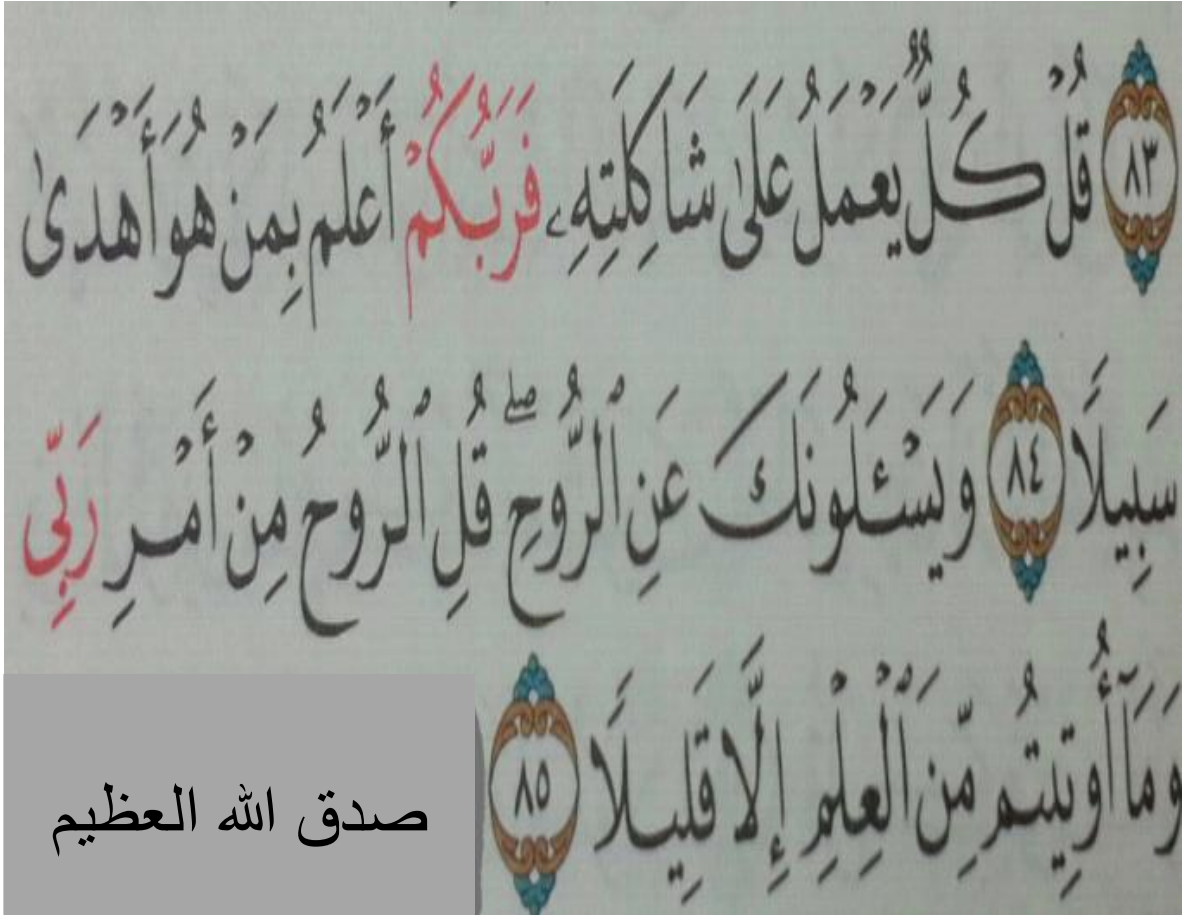 ٨٣ قُلْ كُلٌّ يَعْمَلُ عَلَىٰ شَاكِلَتِهِۦ فَرَبُّكُمْ أَعْلَمُ بِمَنْ هُوَ أَهْدَىٰ
سَبِيلًا ٨٤ وَيَسْـَٔلُونَكَ عَنِ ٱلرُّوحِ ۖ قُلِ ٱلرُّوحُ مِنْ أَمْرِ رَبِّى
وَمَآ أُوتِيتُم مِّنَ ٱلْعِلْمِ إِلَّا قَلِيلًا ٨٥
صدق الله العظيم